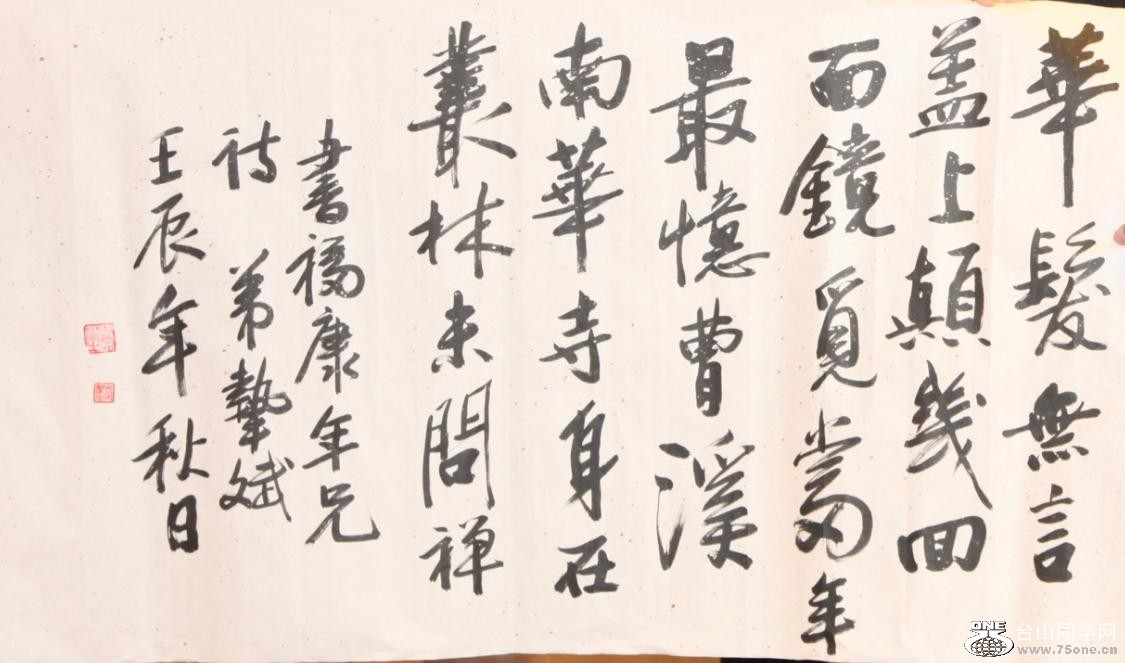 華髮無言
盖上顛幾回
面鏡覓當年
最憶曹溪
南華寺身在
叢林未問禅
書福康年兄
诗 弟摯斌
壬辰年秋日
ONE
台山同学网
www.75one.cn